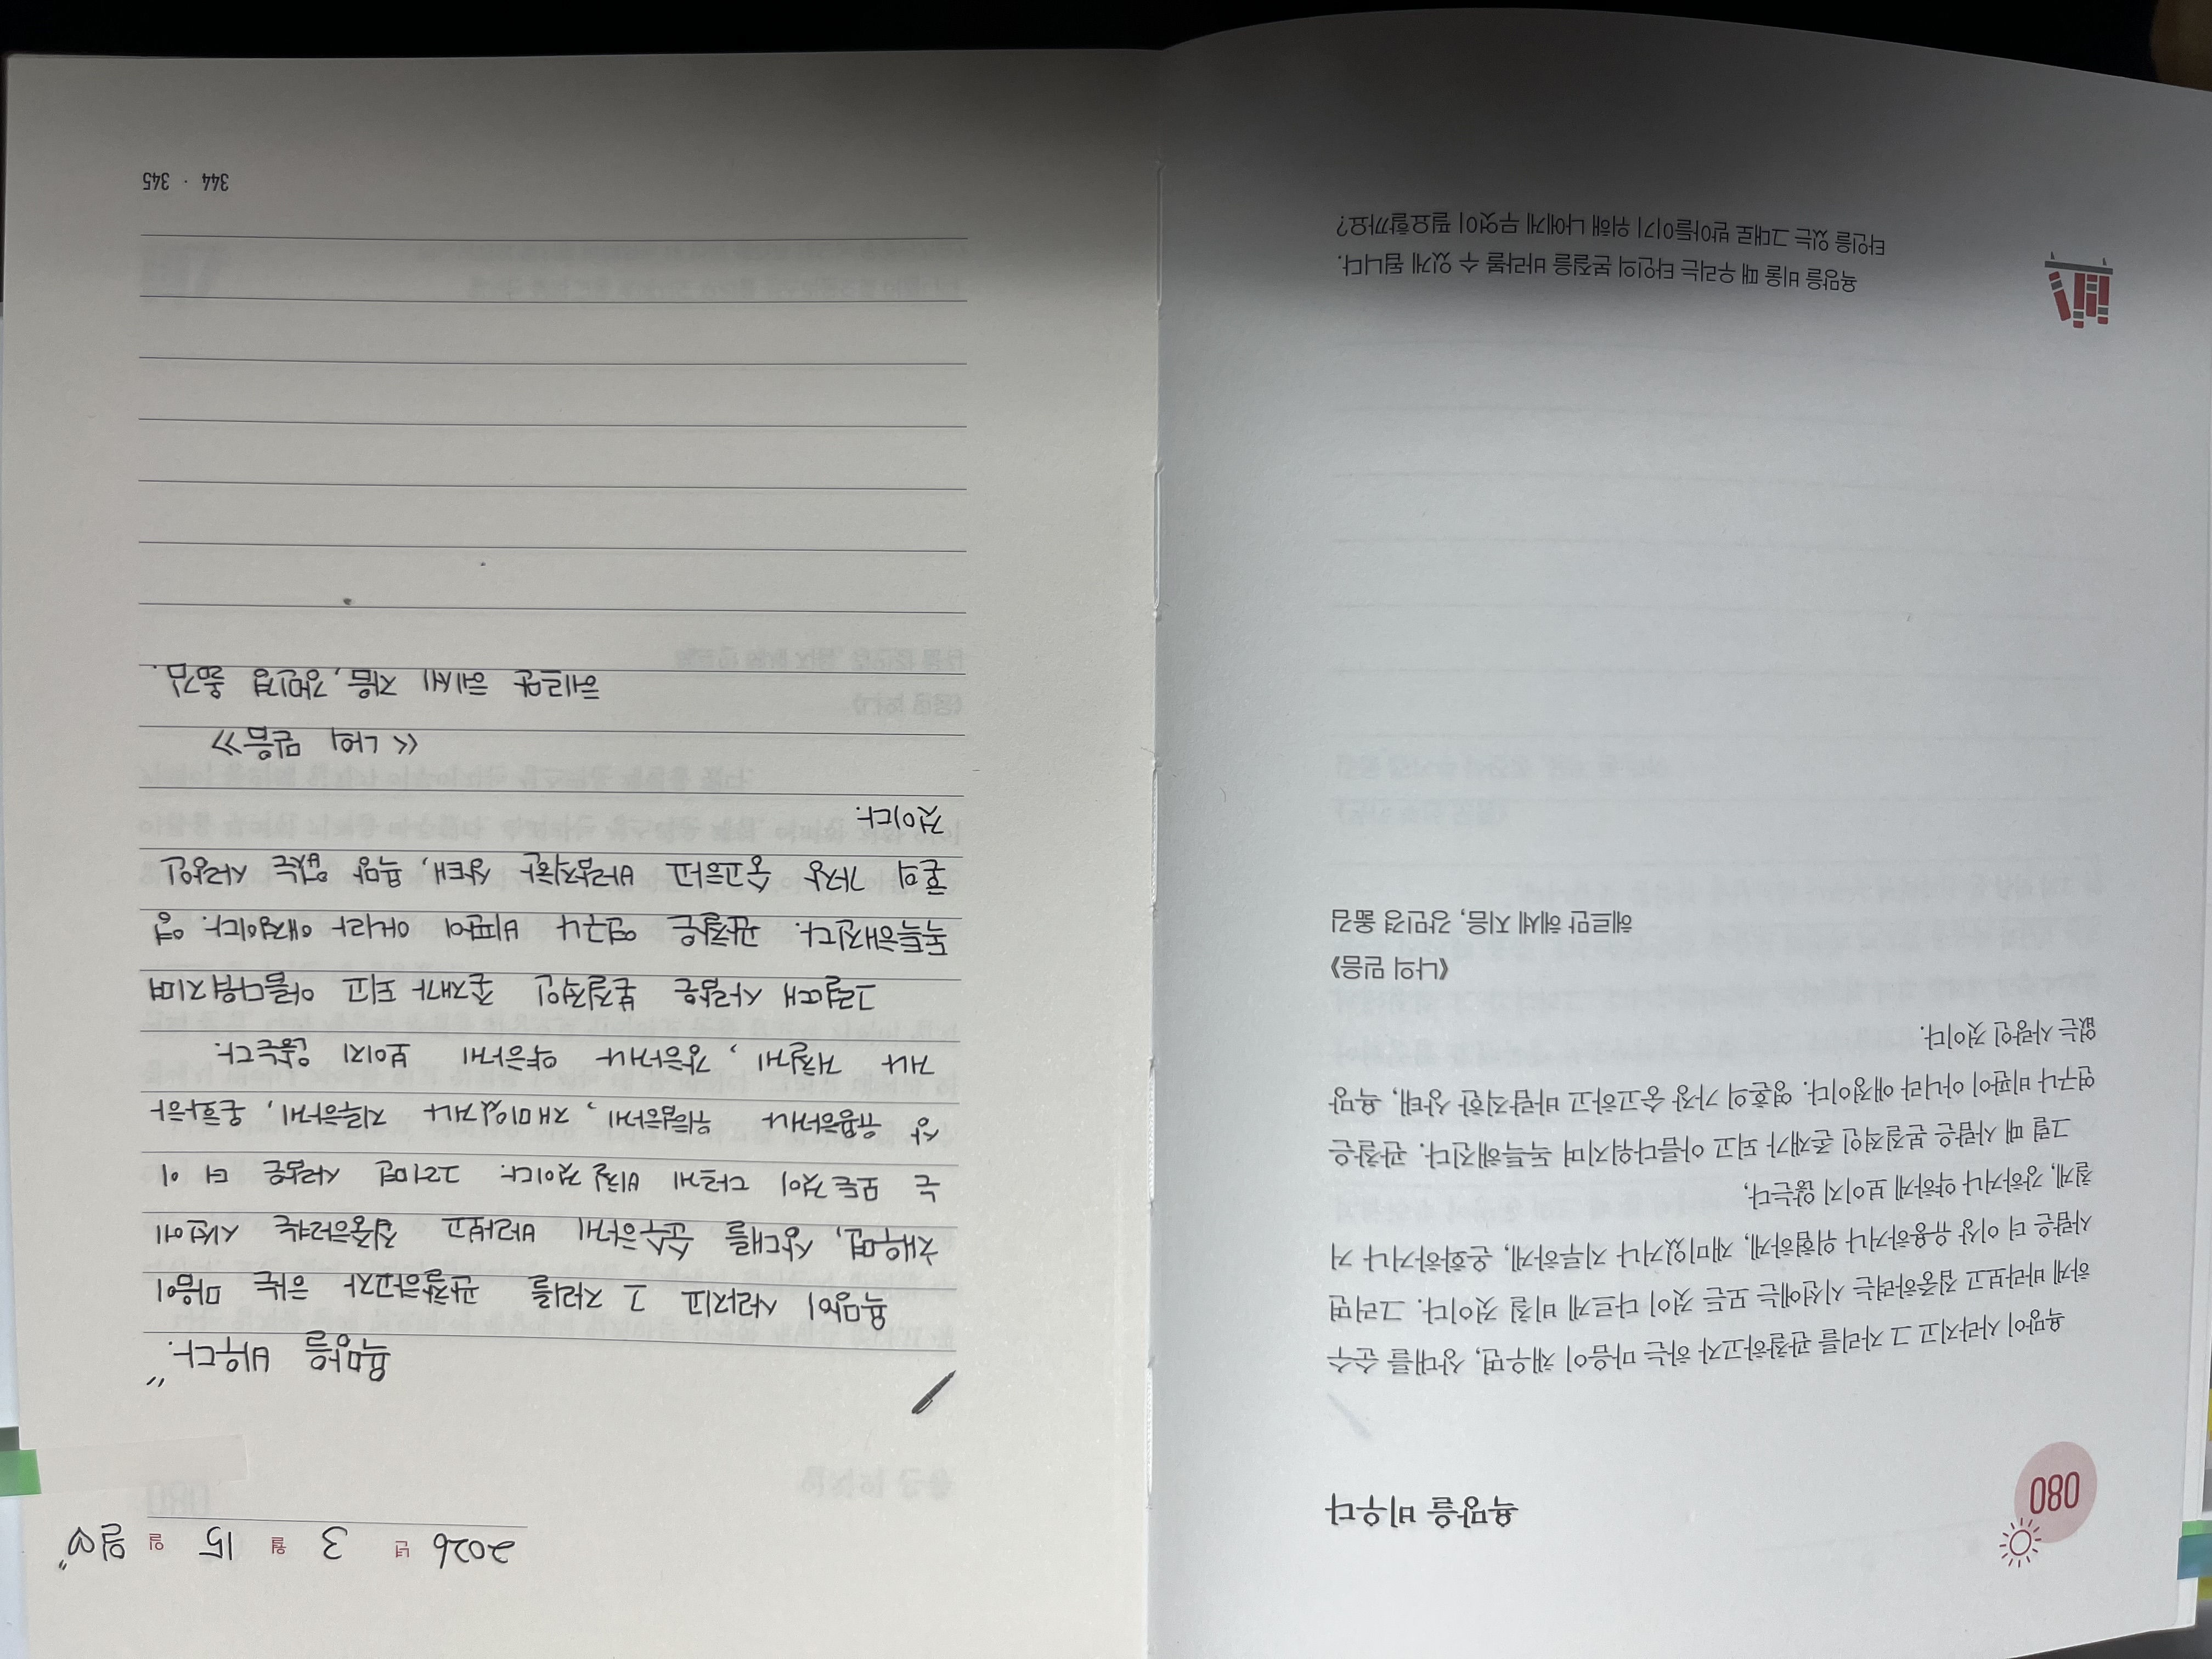 080
욕망을 비우다
욕망이 사라지고 그 자리를 관찰하고자 하는 마음이 채우면, 상대를 순수
하게 바라보고 집중하려는 시선에는 모든 것이 다르게 비칠 것이다. 그러면
사람은 더 이상 유용하거나 위험하게, 재미있거나 지루하게, 온화하거나 거
칠게, 강하거나 약하게 보이지 않는다.
그럴 때 사람은 본질적인 존재가 되고 아름다워지며 독특해진다. 관찰은
연구나 비판이 아니라 애정이다. 영혼의 가장 숭고하고 바람직한 상태, 욕망
없는 사랑인 것이다.
《나의 믿음》
헤르만 헤세 지음, 강민경 옮김
욕망을 비울 때 우리는 타인의 본질을 바라볼 수 있게 됩니다.
타인을 있는 그대로 받아들이기 위해 나에게 무엇이 필요할까요?
2026 년 3 월 15 일 일
욕망을 비우다.
욕망이 사라지고 그 자리를 관찰하고자 하는 마음이
채우면, 상대를 순수하게 바라보고 집중하려는 시선에
는 모든것이 다르게 비칠 것이다. 그러면 사람은 더 이
상 유용하거나 위험하게, 재미있거나 지루하게, 온화하
거나 거칠게, 강하거나 약하게 보이지 않는다.
그럴때 사람은 본질적인 존재가 되고 아름다워지며
독특해진다. 관찰은 연구나 비판이 아니라 애정이다. 영
혼의 가장 숭고하고 바람직한 상태, 욕망 없는 사랑인
것이다.
《나의 믿음》
헤르만 헤세 지음, 강민경 옮김.
344 · 345